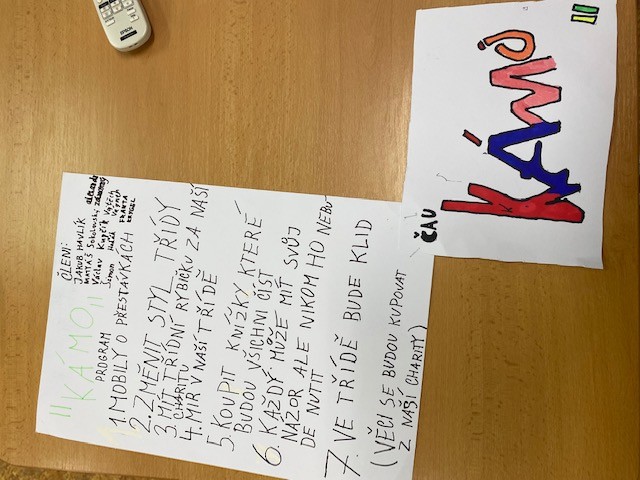 "KÁMO"
PROGRAM
ČLENI:
JAKUB HAVLÍK
MATÁŠ Sokolovský
Václav Krapčík Vojtěch
Šimon
FRANTA
1. MOBILY O PŘESTÁVKÁCH
2. ZMĚNIT STYL TŘÍDY
3. MÍT TŘÍDNÍ RYBIČKU ZA NAŠÍ
CHARITU
4. MÍR V NAŠÍ TŘÍDĚ
5. KOUPIT KNÍŽKY KTERÉ
BUDOU VŠICHNI ČÍST
6. KAŽDÝ MŮŽE MÍT SVŮJ
NÁZOR ALE NIKOHO HO NEBU-
DE NUTIT
7. VE TŘÍDĚ BUDE KLID
(VĚCI SE BUDOU KUPOVAT
Z NAŠÍ CHARITY)
ČAU
"KÁMO"
EPSON